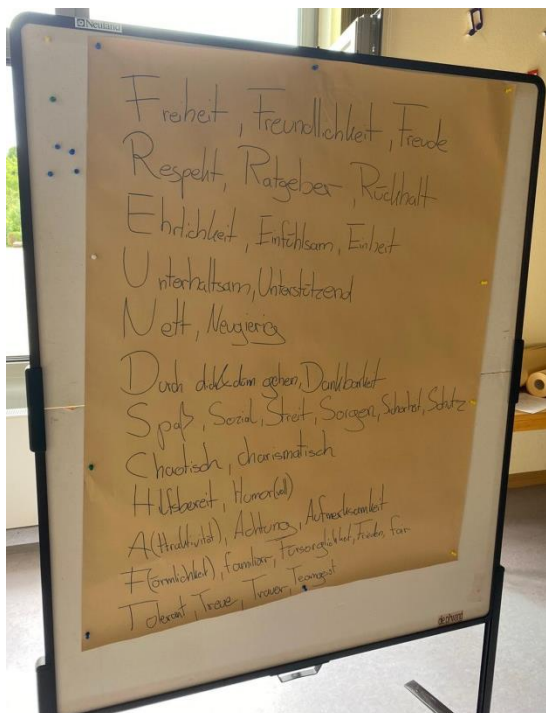 Neuland
Freiheit, Freundlichkeit, Freude
Respekt, Ratgeber, Rückhalt
Ehrlichkeit, Einfühlsam, Einheit
Unterhaltsam, Unterstützend
Nett, Neugierig
Durch dick&dünn gehen, Dankbarkeit
Spaß, Sozial, Streit, Sorgen, Sicherheit, Schutz
Chaotisch, charismatisch
Hilfsbereit, Humor(voll)
A(ttraktivität), Achtung, Aufmerksamkeit
F(örmlichkeit), familiär, Fürsorglichkeit, Frieden, fair
Tolerant, Treue, Trauer, Teamgeist